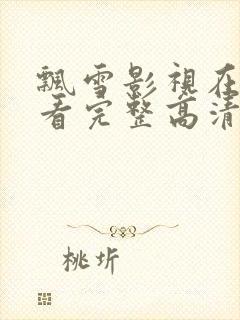 飘雪影視在
看完整高清
桃圻